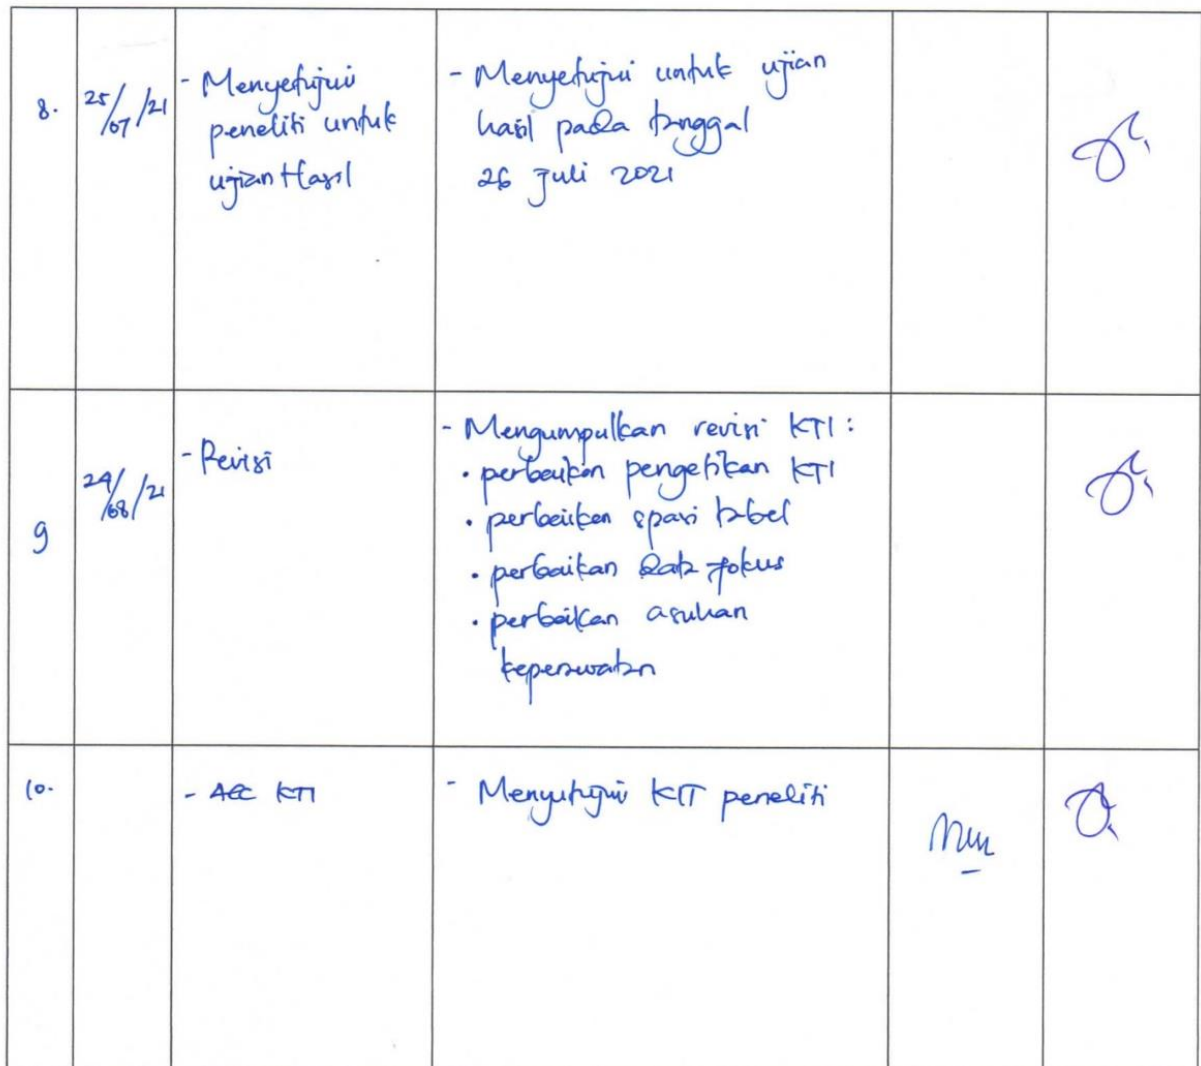 8.
25/07/21
- Menyetujui
peneliti untuk
ujian Hasil
- Menyetujui untuk ujian
hasil pada tanggal
26 Juli 2021
9
24/08/21
- Revisi
- Mengumpulkan revisi KTI :
• perbaikan pengetikan KTI
• perbaikan spasi tabel
• perbaikan data fokus
• perbaikan asuhan
keperawatan
10.
- ACC KTI
- Menyetujui KIT peneliti